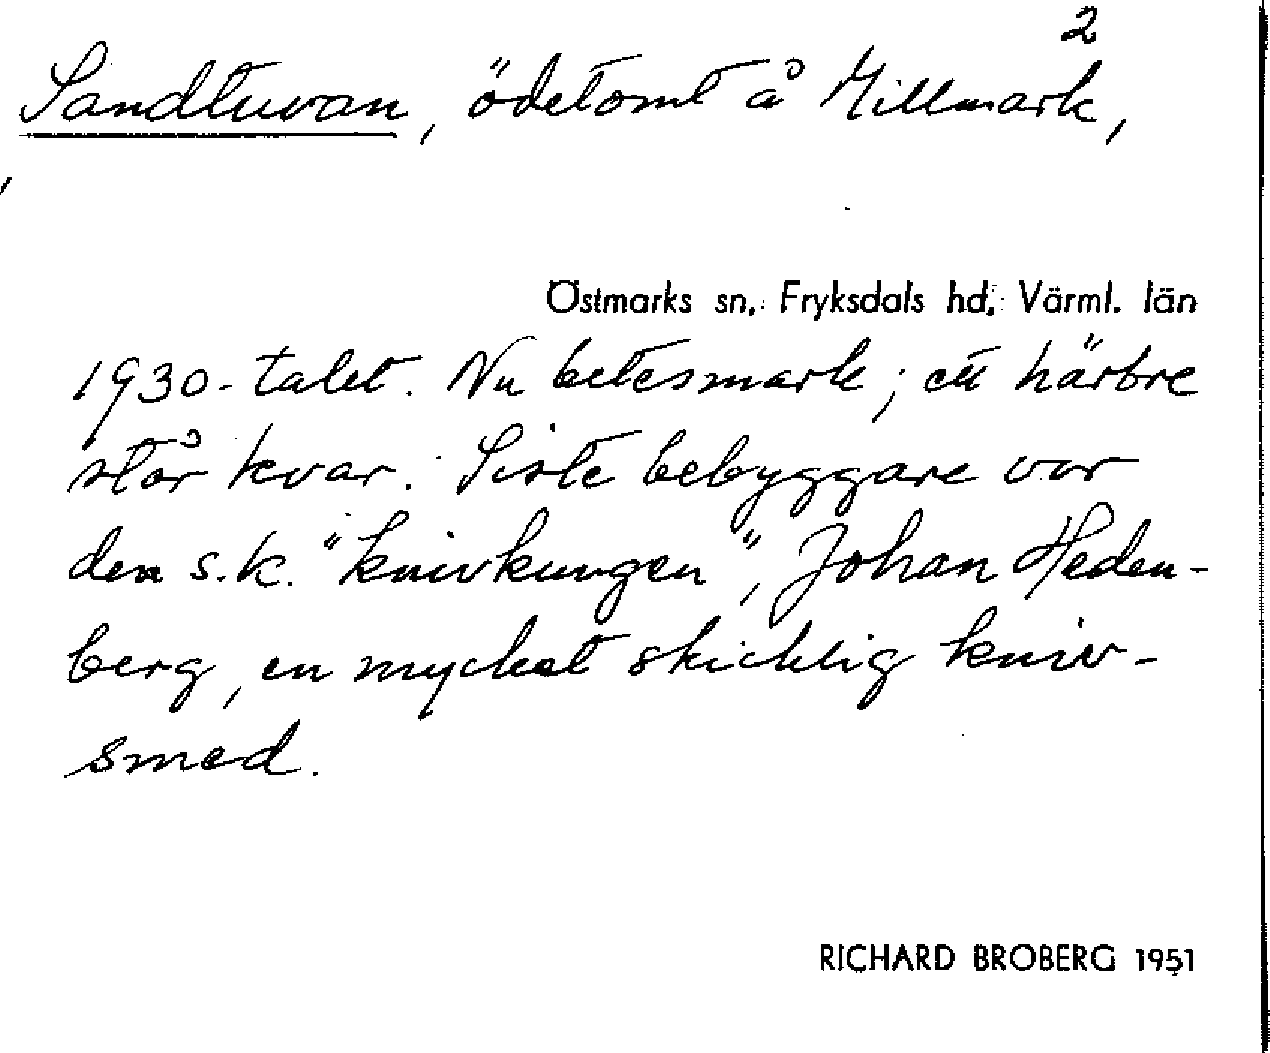 2
Sandtuvan, ödetomt å Millmark,
Östmarks sn, Fryksdals hd, Värml. län
1930-talet. Nu betesmark; ett härbre
står kvar. Siste bebyggare var
den s.k. "knivkungen", Johan Heden-
berg, en mycket skicklig kniv-
smed.
RICHARD BROBERG 1951